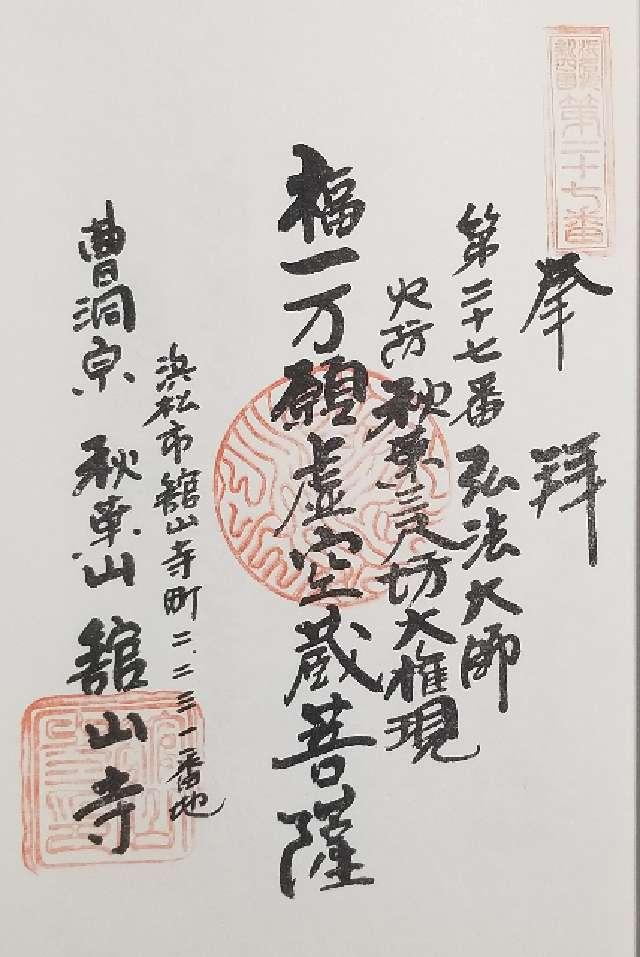 第二十七番
奉拝
第二十七番 弘法大師
火防 秋葉三尺坊大権現
福一万願虚空蔵菩薩
浜松市舘山寺町二、二三一番地
曹洞宗 秋葉山 舘山寺